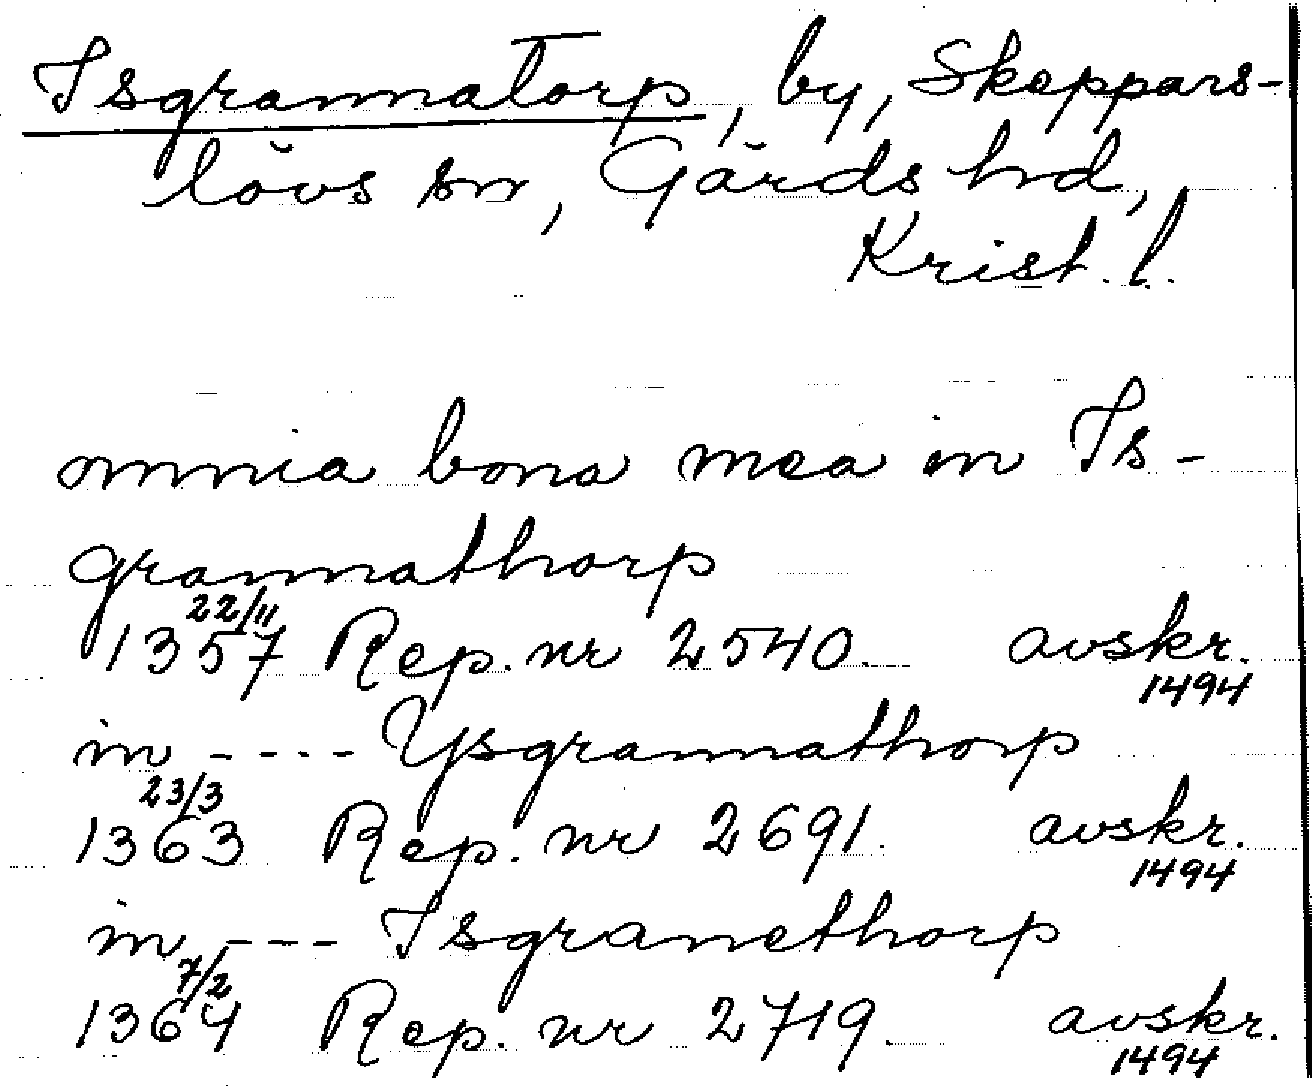 Isgrannatorp, by, Skeppars-
lövs sn, Gärds hd,
Krist. l.
omnia bona mea in Is-
grannathorp
22/11
1357 Rep. nr 2540 avskr.
1494
in ---- Ysgrannathorp
23/3
1363 Rep. nr 2691. avskr.
1494
in ---- Isgranethorp
7/2
1364 Rep. nr 2719 avskr.
1494